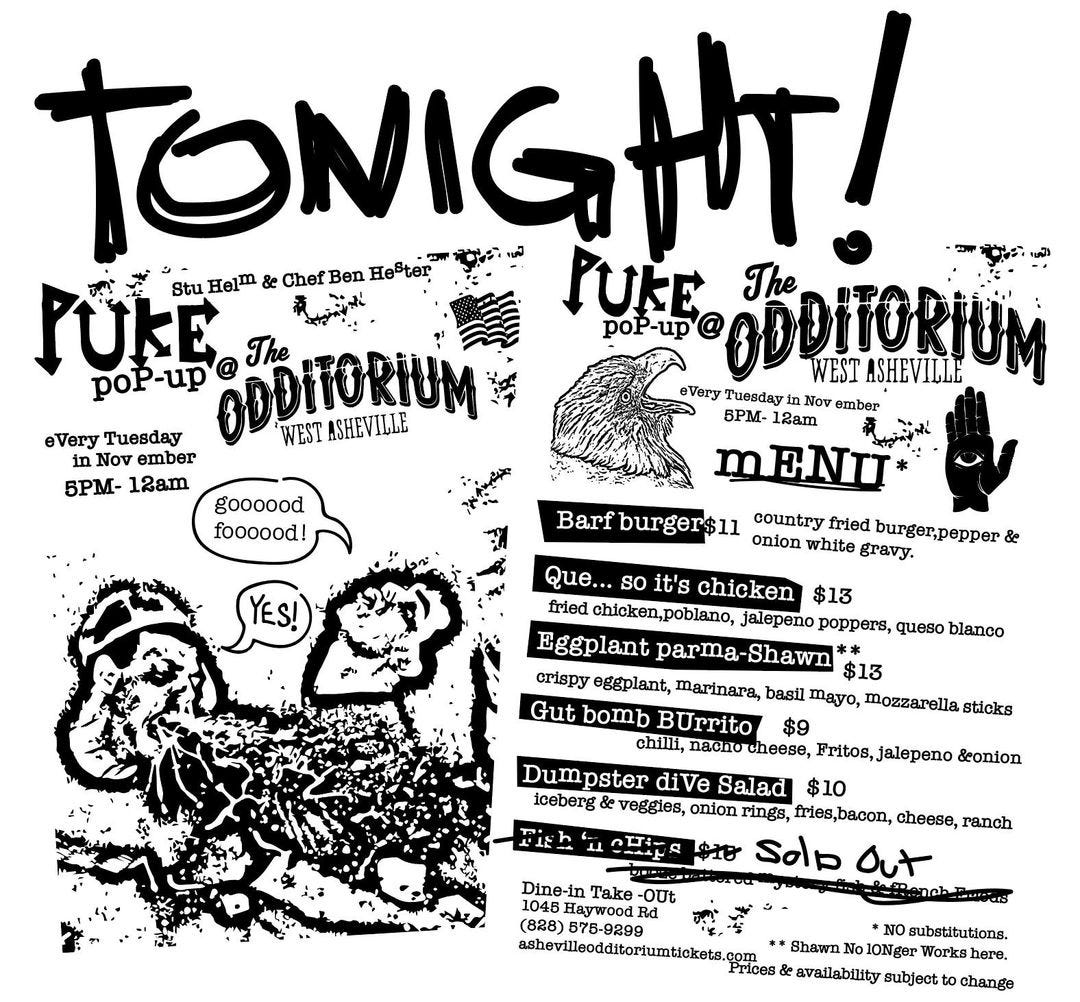 TONIGHT!
Stu Helm & Chef Ben Hester
PUKE
poP-up @ The
ODDITORIUM
WEST ASHEVILLE
eVery Tuesday
in Nov ember
5PM- 12am
goooood
foooood!
YES!
PUKE
poP-up @ The
ODDITORIUM
WEST ASHEVILLE
eVery Tuesday in Nov ember
5PM- 12am
mENU*
Barf burger $11 country fried burger,pepper &
onion white gravy.
Que... so it's chicken $13
fried chicken,poblano, jalepeno poppers, queso blanco
Eggplant parma-Shawn** $13
crispy eggplant, marinara, basil mayo, mozzarella sticks
Gut bomb BUrrito $9
chilli, nacho cheese, Fritos, jalepeno &onion
Dumpster diVe Salad $10
iceberg & veggies, onion rings, fries,bacon, cheese, ranch
Fish 'n cHips Sold Out
battered fish &
Dine-in Take -OUt
1045 Haywood Rd
(828) 575-9299
ashevilleodditoriumtickets.com
* NO substitutions.
** Shawn No lONger Works here.
Prices & availability subject to change